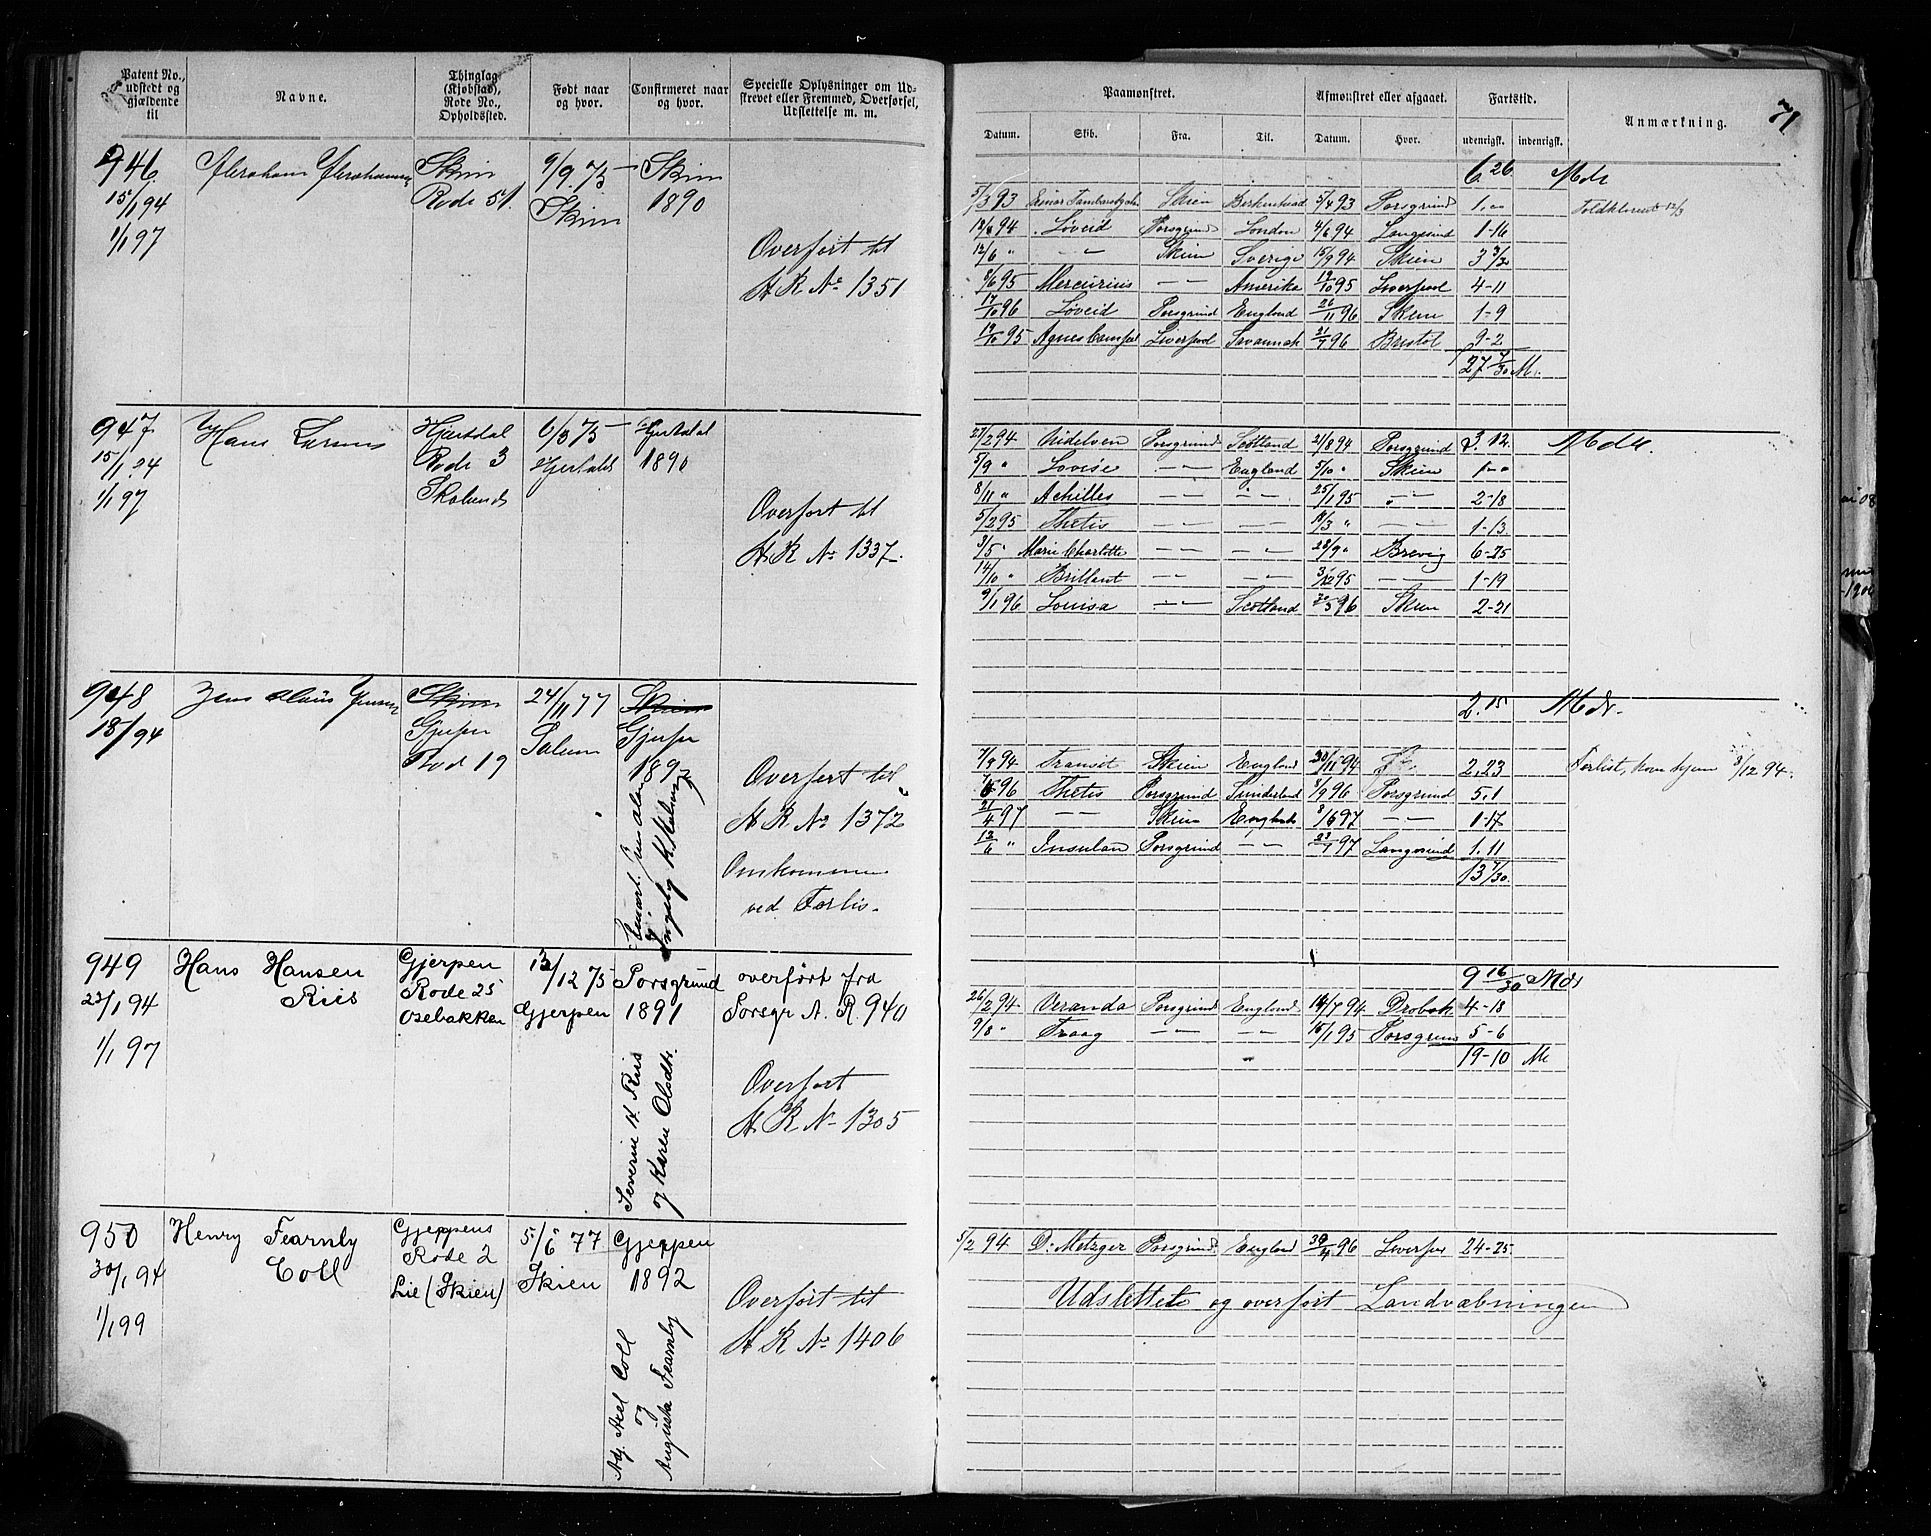 Patent No., udstedt og gjældende til
Navne.
Thinglag (Kjøbstad), Rode No., Opholdssted.
Født naar og hvor.
Confirmeret naar og hvor.
Specielle Oplysninger om Udskrevet eller Fremmed, Overførsel, Udslettelse m. m.
946.
15/1 94
1/1 97
Skien
Rode 51.
9/9. 75
Skien
Skien
1890
Overført til
A R No 1351
947
15/1 94
1/1 97
Hans Larsen
Hjartdal
Rode 3
6/3 75
1890
Overført til
A. R No 1337.
948
18/1 94
Skien
Gjerpen
Rod 19
24/11 77
Solum
Skien
Gjerpen
Overført til
A R No 1372
Omkommen
ved Forlis.
949
23/1 94
1/1 97
Hans Hansen
Riis
Gjerpen
Rode 25
Osebakken
13/12 75
Gjerpen
Porsgrund
1891
Severin H. Riis
og Karen Olsdtr.
overført fra
Porsgr A. R. 940
Overført
A R No 1305
950
30/1 94
1/1 99
Henry Fearnly
Coll
Gjerpens
Rode 2
Lie (Skien)
5/6 77
Skien
Gjerpen
1892
Coll
og
Augusta Fearnly
Overført til
A R No 1406
71
Paamønstret.
Afmønstret eller afgaaet.
Fartstid.
Anmærkning.
Datum. Skib. Fra. Til. Datum. Hvor. udenrigsk. indenrigsk.
6 26 Mdr
5/3 93 Skien Birkenhead 5/4 93 Porsgrund 1.00
94 Løveid Porsgrund London 4/6 94 Langesund 1-16
12/6 " - " - Skien Sverige 15/9 94 Skien 3 3/30
8/6 95 Mercurius - " - Amerika 19/10 95 Liverpool 4-11
17/10 96 Løveid Porsgrund England 26/11 96 Skien 1-9
19/10 95 Liverpool Savannah 21/7 96 Bristol 9-2
27 7/30 M.
27/2 94 Nidelven Porsgrund Scotland 21/8 94 Porsgrund 3. 12. Mdr.
5/9 " Lovise - " - England 5/10 " Skien
8/11 " Achilles - " - - " - 25/1 95 - " - 2-18
5/2 95 Thetis - " - - " - 18/3 " - " - 1-13
3/5 " Marie Charlotte - " - - " - 28/9 " Brevig 6-25
14/10 " Brillant - " - - " - 3/12 95 - " - 1-19
9/1 96 Louisa - " - Scotland 30/3 96 Skien 2-21
2. 15 Mdr.
7/9 94 Transit Skien England 30/11 94 2.23 Forlist, kom hjem 3/12 94.
96 Thetis Porsgrund Sunderland 8/9 96 Porsgrund 5.1
21/4 97 - " - Skien England 8/6 97 - " - 1-17
12/6 " Insulan Porsgrund - " - 23/7 97 Langesund 1. 11
13 7/30.
9 16/30 Mdr
26/2 94 Veranda Porsgrund England 14/7 94 Drobak 4-18
9/8 " Traag - " - - " - 15/1 95 Porsgrund 5-6
19-10 M
5/2 94 D. Metzger Porsgrund England 30/4 96 24-25
Udslettet og overført Landværbningen